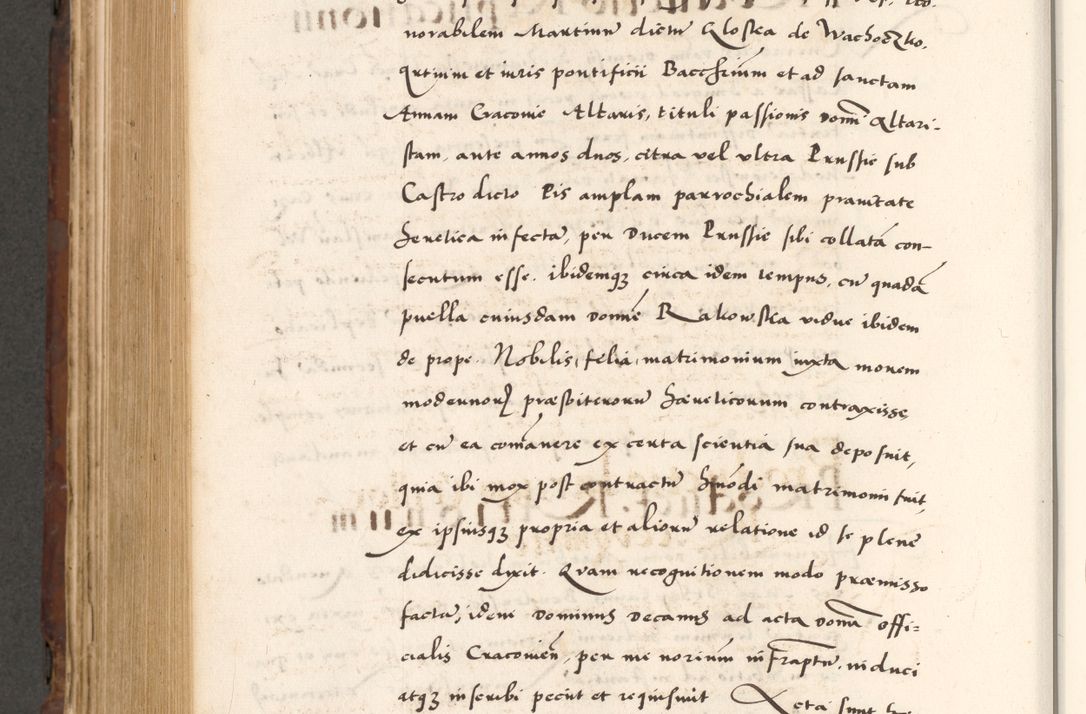 norabilem Martinũ dictũ Kloska de Wachoczko,
artium et iuris pontificii Bacchriũm et ad sanctam
Annam Cracovie Altaris, tituli passionis domĩ Altari-
stam, ante annos duos, citra vel ultra Prussie sub
Castro dicto Pis amplam parrochialem pravitate
heretica infectã, per Ducem Prussie sibi collatã con-
secutum esse. ibidemqȝ circa idem tempus, cũ quadã
puella cuiusdam domne Rakowska vidue ibidem
de prope. Nobilis, felia, matrimonium iuxta morem
modernorꝝ præsbiterorũ hæreticorum contraxisse,
et cũ ea comãnere ex certa scientia sua deposuit,
quia ibi mox post contractũ hmõdi matrimonii fuit,
ex ipsiusqȝ propria et aliorũ relatione id se plenè
didicisse dixit. Quam recognitionem modo præmisso
factã, idem Dominus Decanus ad acta domĩ offi-
cialis Cracovieñ, per me noriũm infraptũ, induci
atqȝ inscribi peciit et requisiuit Acta sunt